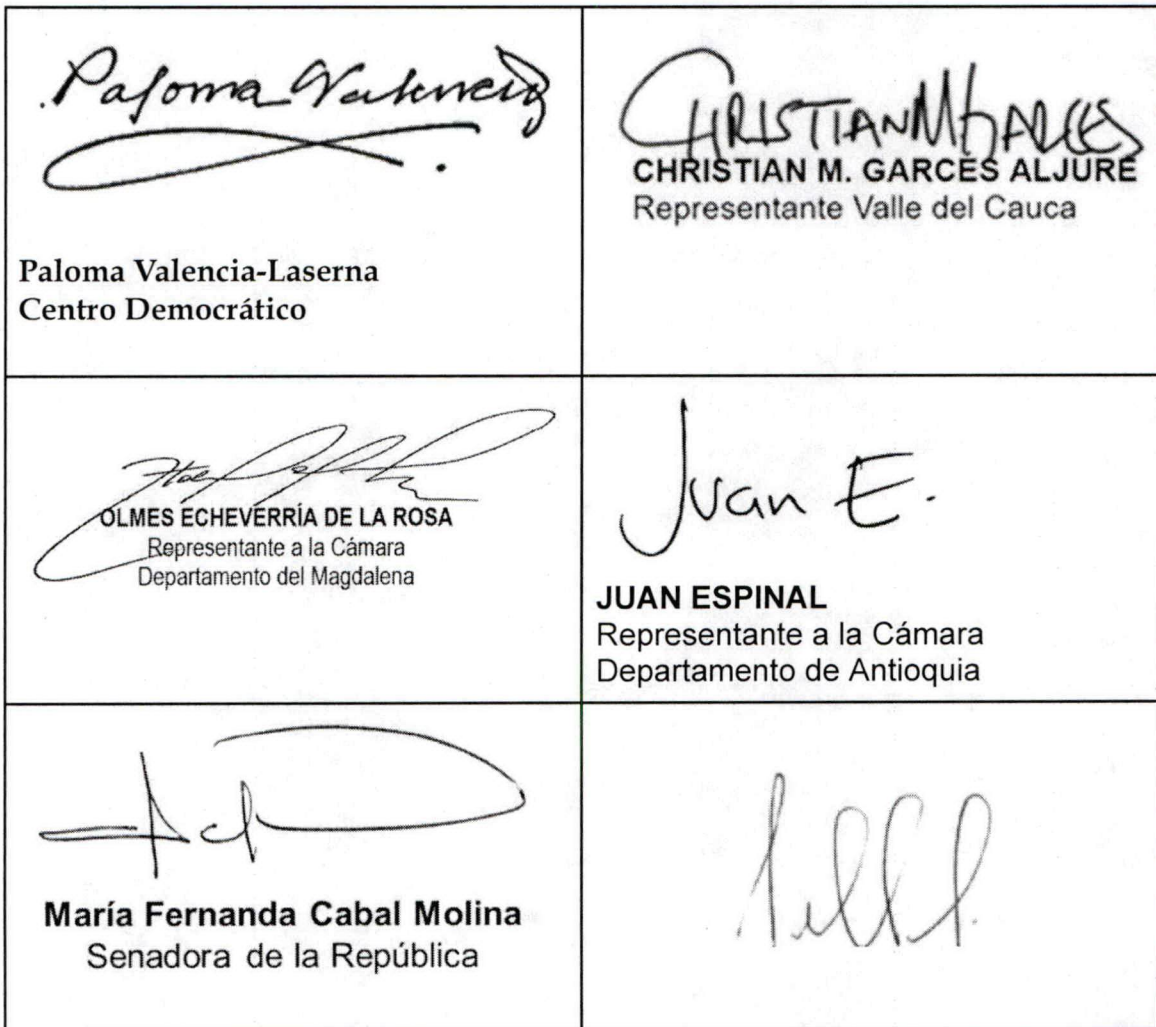 Paloma Valencia
Paloma Valencia-Laserna
Centro Democrático
CHRISTIAN M GARCES
CHRISTIAN M. GARCES ALJURE
Representante Valle del Cauca
OLMES ECHEVERRÍA DE LA ROSA
Representante a la Cámara
Departamento del Magdalena
Juan E.
JUAN ESPINAL
Representante a la Cámara
Departamento de Antioquia
María Fernanda Cabal Molina
Senadora de la República